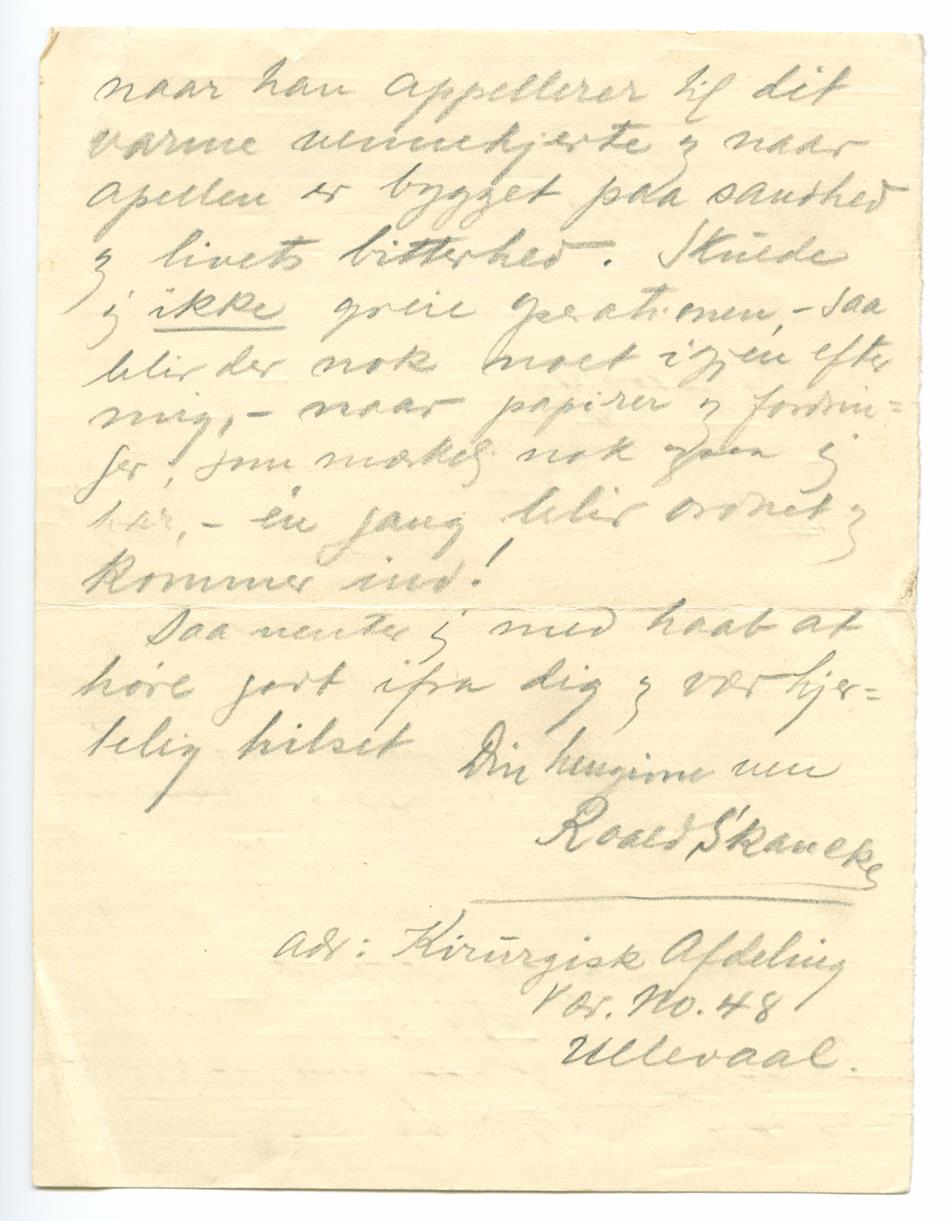 naar han appellerer til dit
varme vennehjerte og naar
apellen er bygget paa sandhed
og livets bitterhed. Skulde
jeg ikke greie operationen, – saa
blir der nok noet igjen efter
mig, – naar papirer og fordrin=
ger, som mærkelig nok ogsaa jeg
har, – én gang blir ordnet og
kommer ind!
Saa venter jeg med haab at
høre godt ifra dig og vær hjer=
telig hilset
Din hengivne ven
Roald Skancke
adr: Kirurgisk Afdeling
Vær. No. 48
Ullevaal.